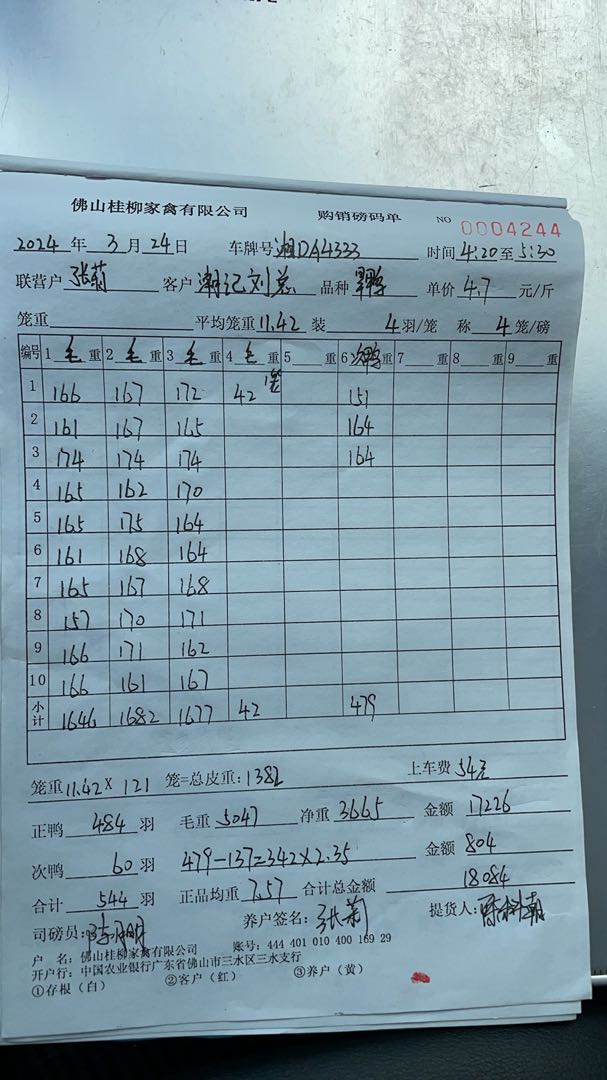 佛山桂柳家禽有限公司 购销磅码单 NO 0004244
2024 年 3 月 24 日 车牌号 湘DA4333 时间 4:20 至 5:30
联营户 张菊 客户 湘记刘总 品种 单价 4.7 元/斤
笼重 平均笼重 11.42 装 4 羽/笼 称 4 笼/磅
编号 1 毛 重 2 毛 重 3 毛 重 4 毛 重 5 重 6 次鸭 重 7 重 8 重 9 重
1 166 167 172 42 151
2 161 167 165 164
3 174 174 174 164
4 165 162 170
5 165 175 164
6 161 168 164
7 165 167 168
8 157 170 171
9 166 171 162
10 166 161 167
小计 1646 1682 1677 42 479
笼重 11.42 × 121 笼=总皮重: 1382 上车费 54元
正鸭 484 羽 毛重 5047 净重 3665 金额 17226
次鸭 60 羽 479-137=342×2.35 金额 804
合计 544 羽 正品均重 7.57 合计总金额 18084
司磅员: 养户签名: 张菊 提货人:
户 名: 佛山桂柳家禽有限公司 账号: 444 401 010 400 169 29
开户行: 中国农业银行广东省佛山市三水区三水支行
①存根（白） ②客户（红） ③养户（黄）